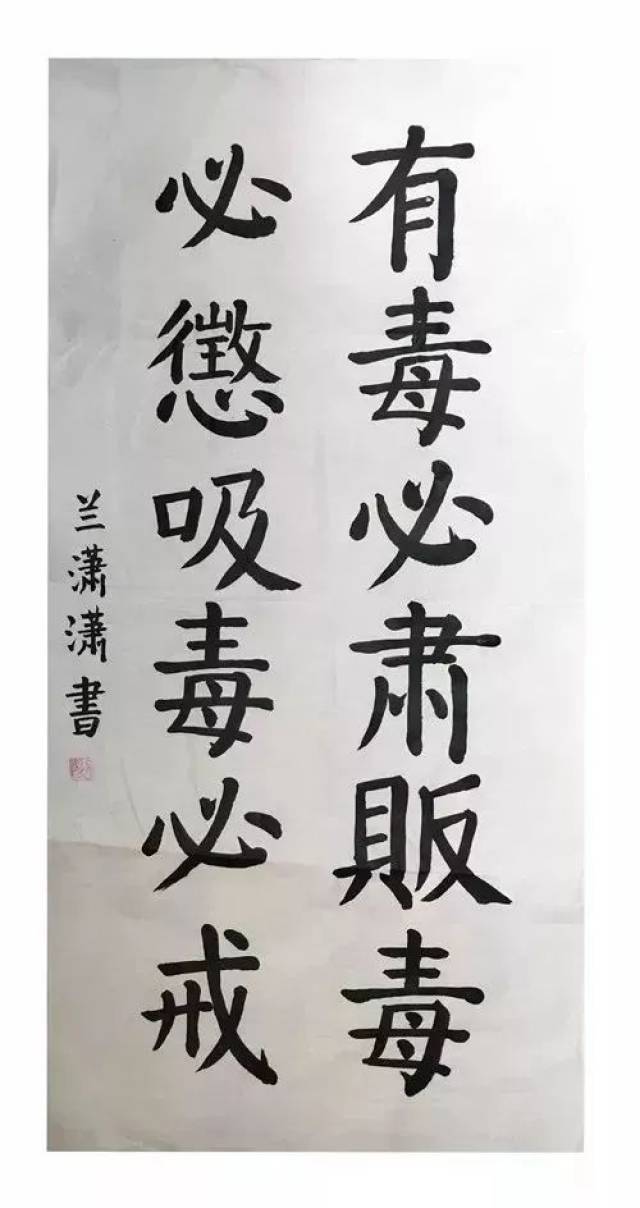 有毒必肃販毒
必懲吸毒必戒
兰瀟瀟書